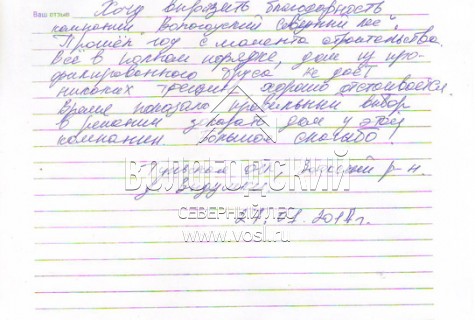 Хочу выразить благодарность
Ваш отзыв
компании "Вологодский Северный лес".
Прошёл год с момента строительства.
Всё в полном порядке, дом из про-
филированного бруса не даёт
никаких трещин, хорошо отстаивается.
Время показало правильный выбор
в решении заказать дом у этой
компании. Большое спасибо!
Тульская обл. р-н.
ВОЛОГОДСКИЙ
СЕВЕРНЫЙ ЛЕС
www.vosl.ru